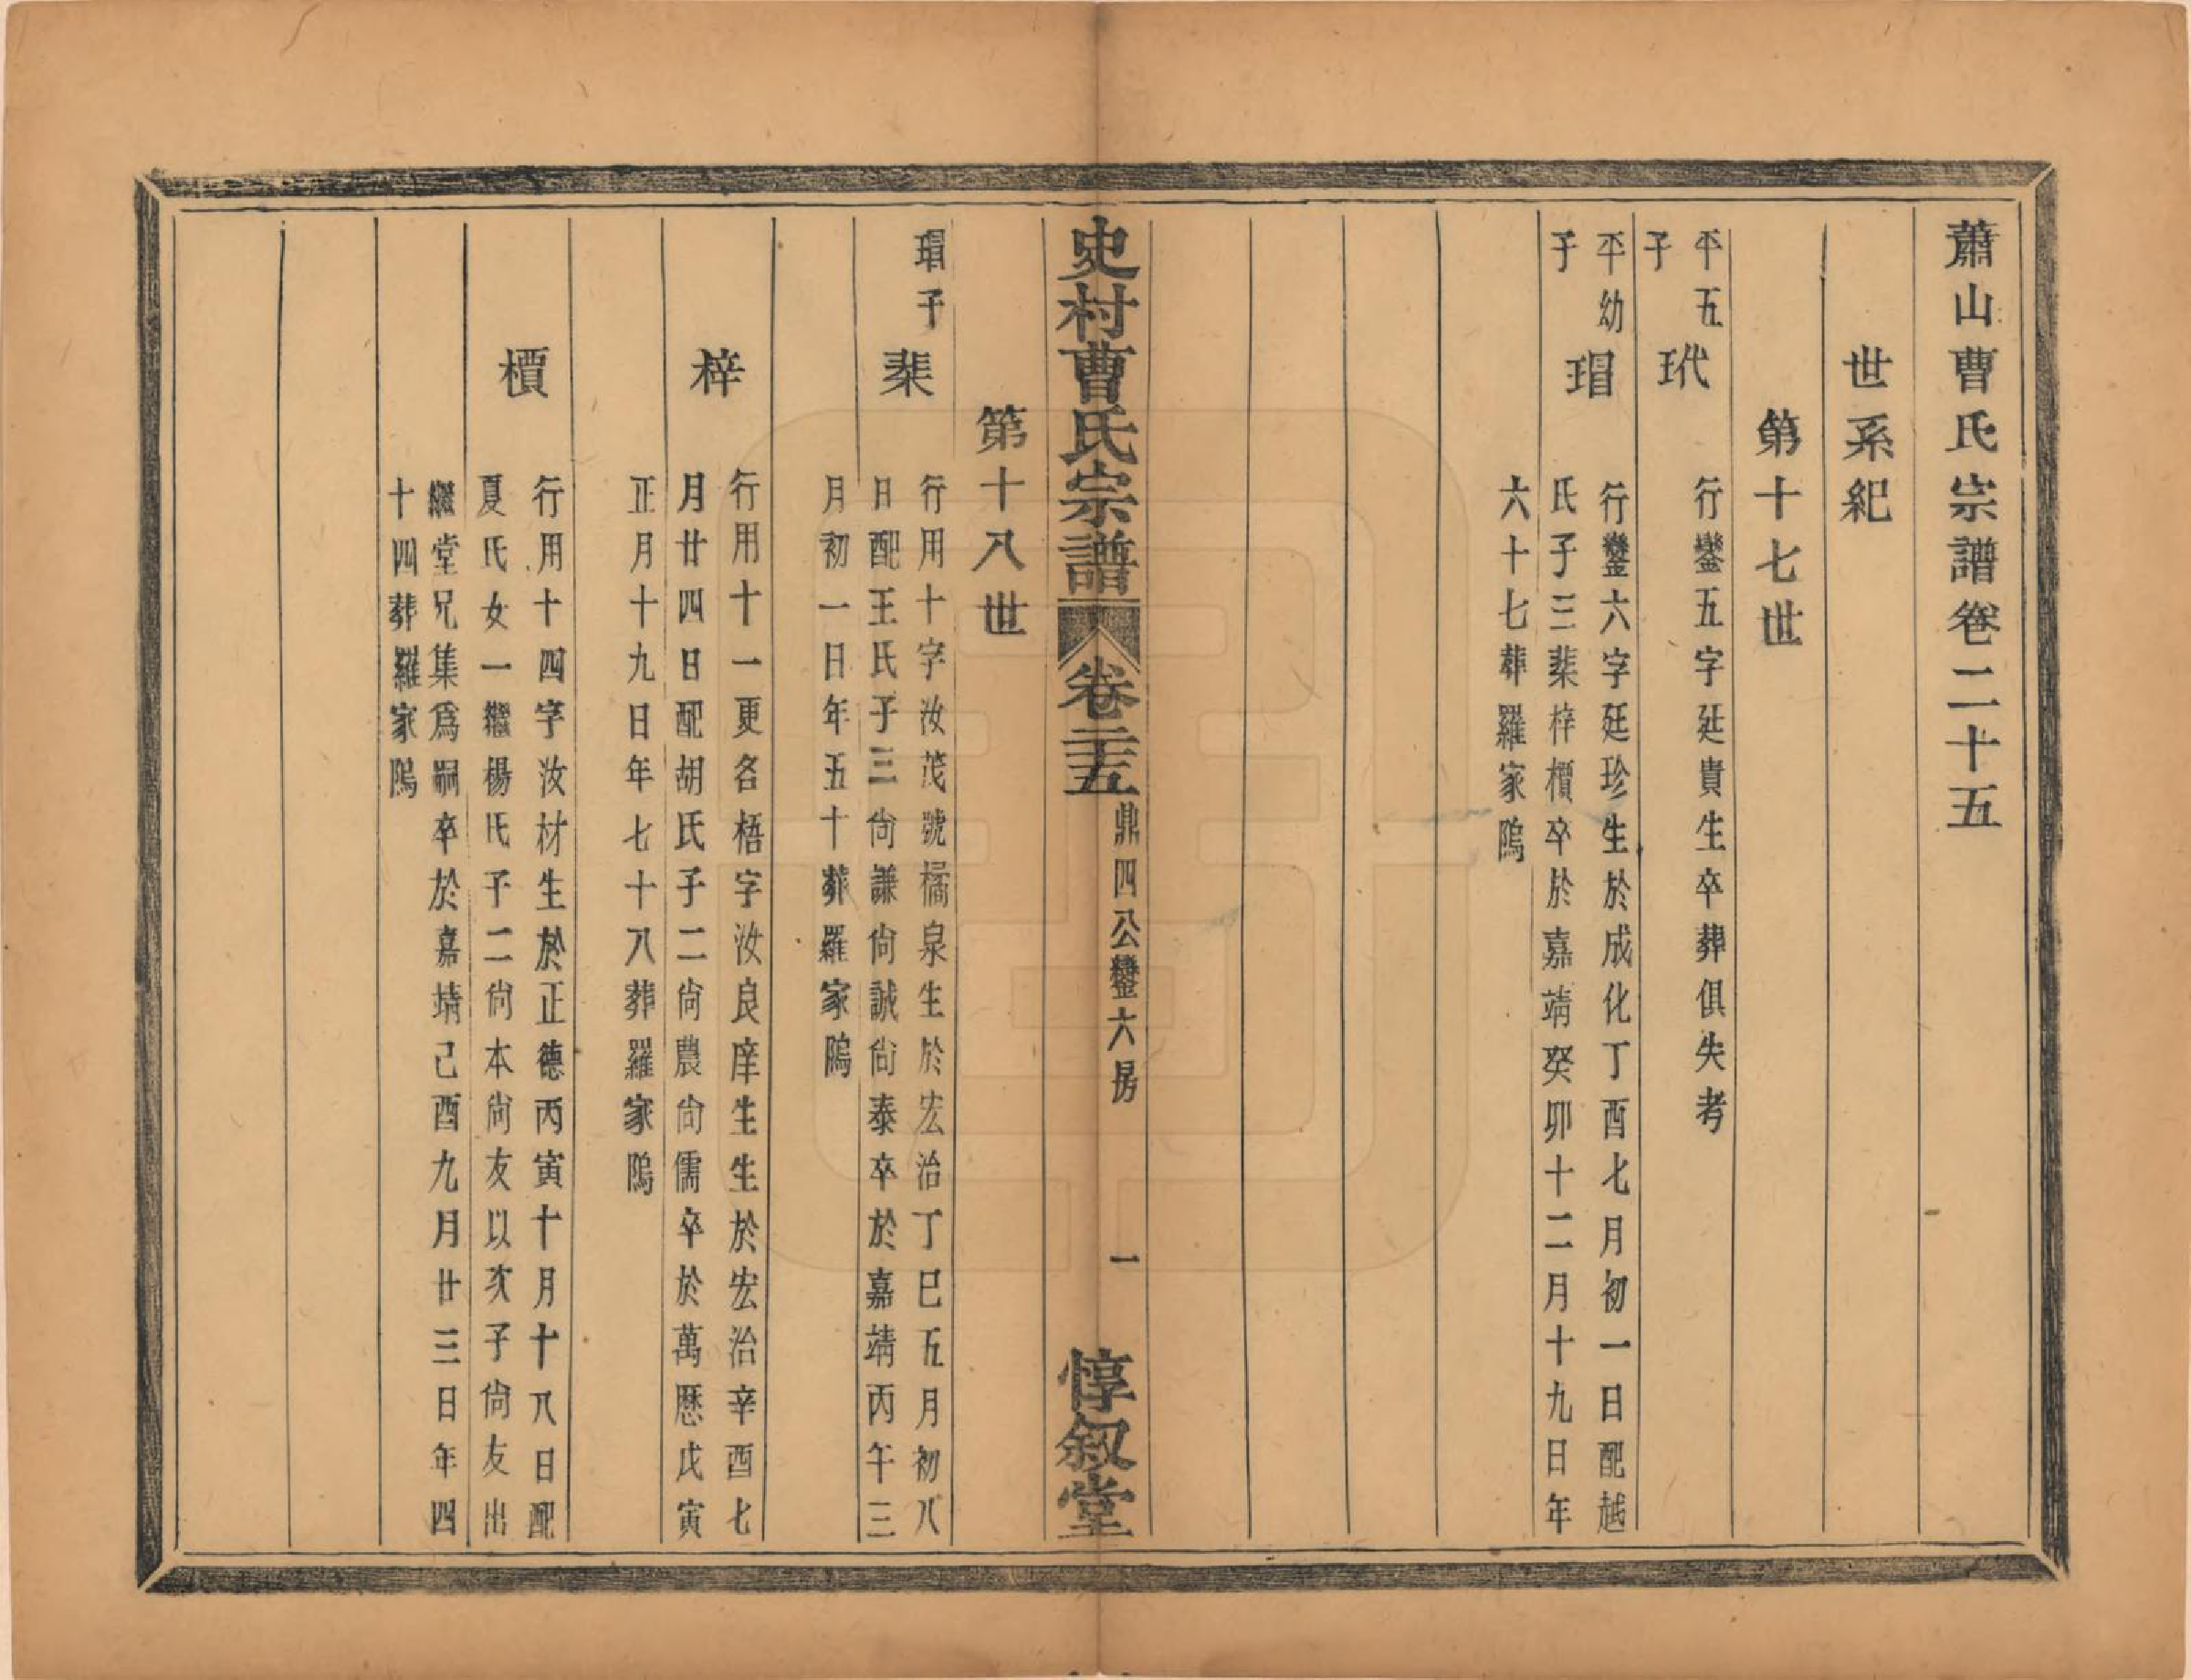 蕭山曹氏宗譜卷二十五
世系紀
第十七世
平五
子
玳
行鑾五字廷貴生卒葬俱失考
平幼
子
瑁
行鑾六字廷珍生於成化丁酉七月初一日配越
氏子三棐梓檟卒於嘉靖癸卯十二月十九日年
六十七葬羅家隖
史村曹氏宗譜
卷二十五
鼎四公鑾六房
一
惇敘堂
第十八世
瑁子
棐
行用十字汝茂號橘泉生於宏治丁巳五月初八
日配王氏子三尙謙尙誠尙泰卒於嘉靖丙午三
月初一日年五十葬羅家隖
梓
行用十一更名梧字汝良庠生生於宏治辛酉七
月廿四日配胡氏子二尙農尙儒卒於萬歷戊寅
正月十九日年七十八葬羅家隖
檟
行用十四字汝材生於正德丙寅十月十八日配
夏氏女一繼楊氏子二尙本尙友以次子尙友出
繼堂兄集爲嗣卒於嘉靖己酉九月廿三日年四
十四葬羅家隖